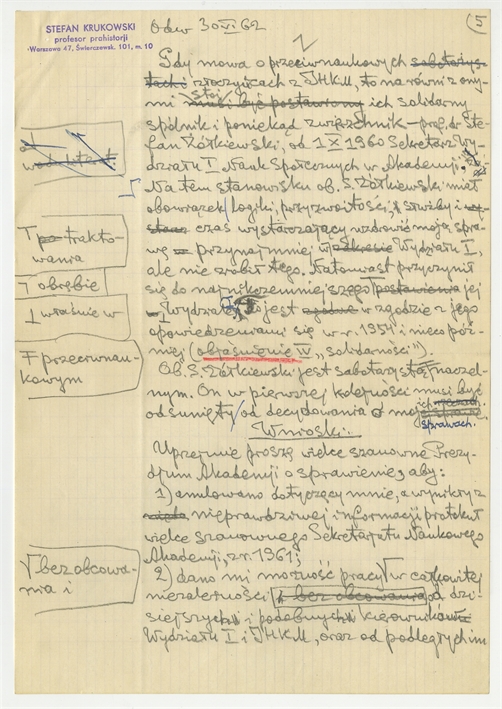 STEFAN KRUKOWSKI
profesor prohistorji
Warszawa 47, Świerczewsk. 101, m. 10
Odw 30 VI 62
5
Gdy mowa o przeciwnaukowych sabotażys-
tach i złoczyńcach z IHKM, to na równi z ony-
mi stoi musi być postawiony ich solidarny
spólnik i poniekąd zwierzchnik – prof. dr Ste-
fan Żółkiewski, od 1 X 1960 Sekretarz Wy-
działu I Nauk Społecznych w Akademji.
Na tem stanowisku ob. S. Żółkiewski miał
obowiązek logiki, przyzwoitości, służby i
czas wystarczający wzdrowić moją spra-
wę przynajmniej w Wydziału I,
ale nie zrobił tego. Natomiast przyczynił
się do najnikczemniejszego jej
Wydziału jest w zgodzie z jego
opowiedzeniami się w r. 1954 i nieco póź-
niej (objaśnienie IV „solidarności").
Ob. S. Żółkiewski jest sabotażystą naczel-
nym. On w pierwszej kolejności musi być
odsunięty od decydowania o moich
sprawach.
Wnioski:
Uprzejmie proszę wielce szanowne Prezy-
djum Akademji o sprawienie, aby:
1) anulowano dotyczący mnie, a wynikły z
nieprawdziwej informacji protokuł
wielce szanownego Sekretarjatu Naukowego
Akademji, z r. 1961;
2) dano mi możność pracy w całkowitej
niezależności i bez obcowania od dzi-
siejszych i podobnych kierowników
Wydziału I i IHKM, oraz od podległych im
T traktowania
obrębie
właśnie w
F przeciwnau-
kowym
bez obcowa-
nia i